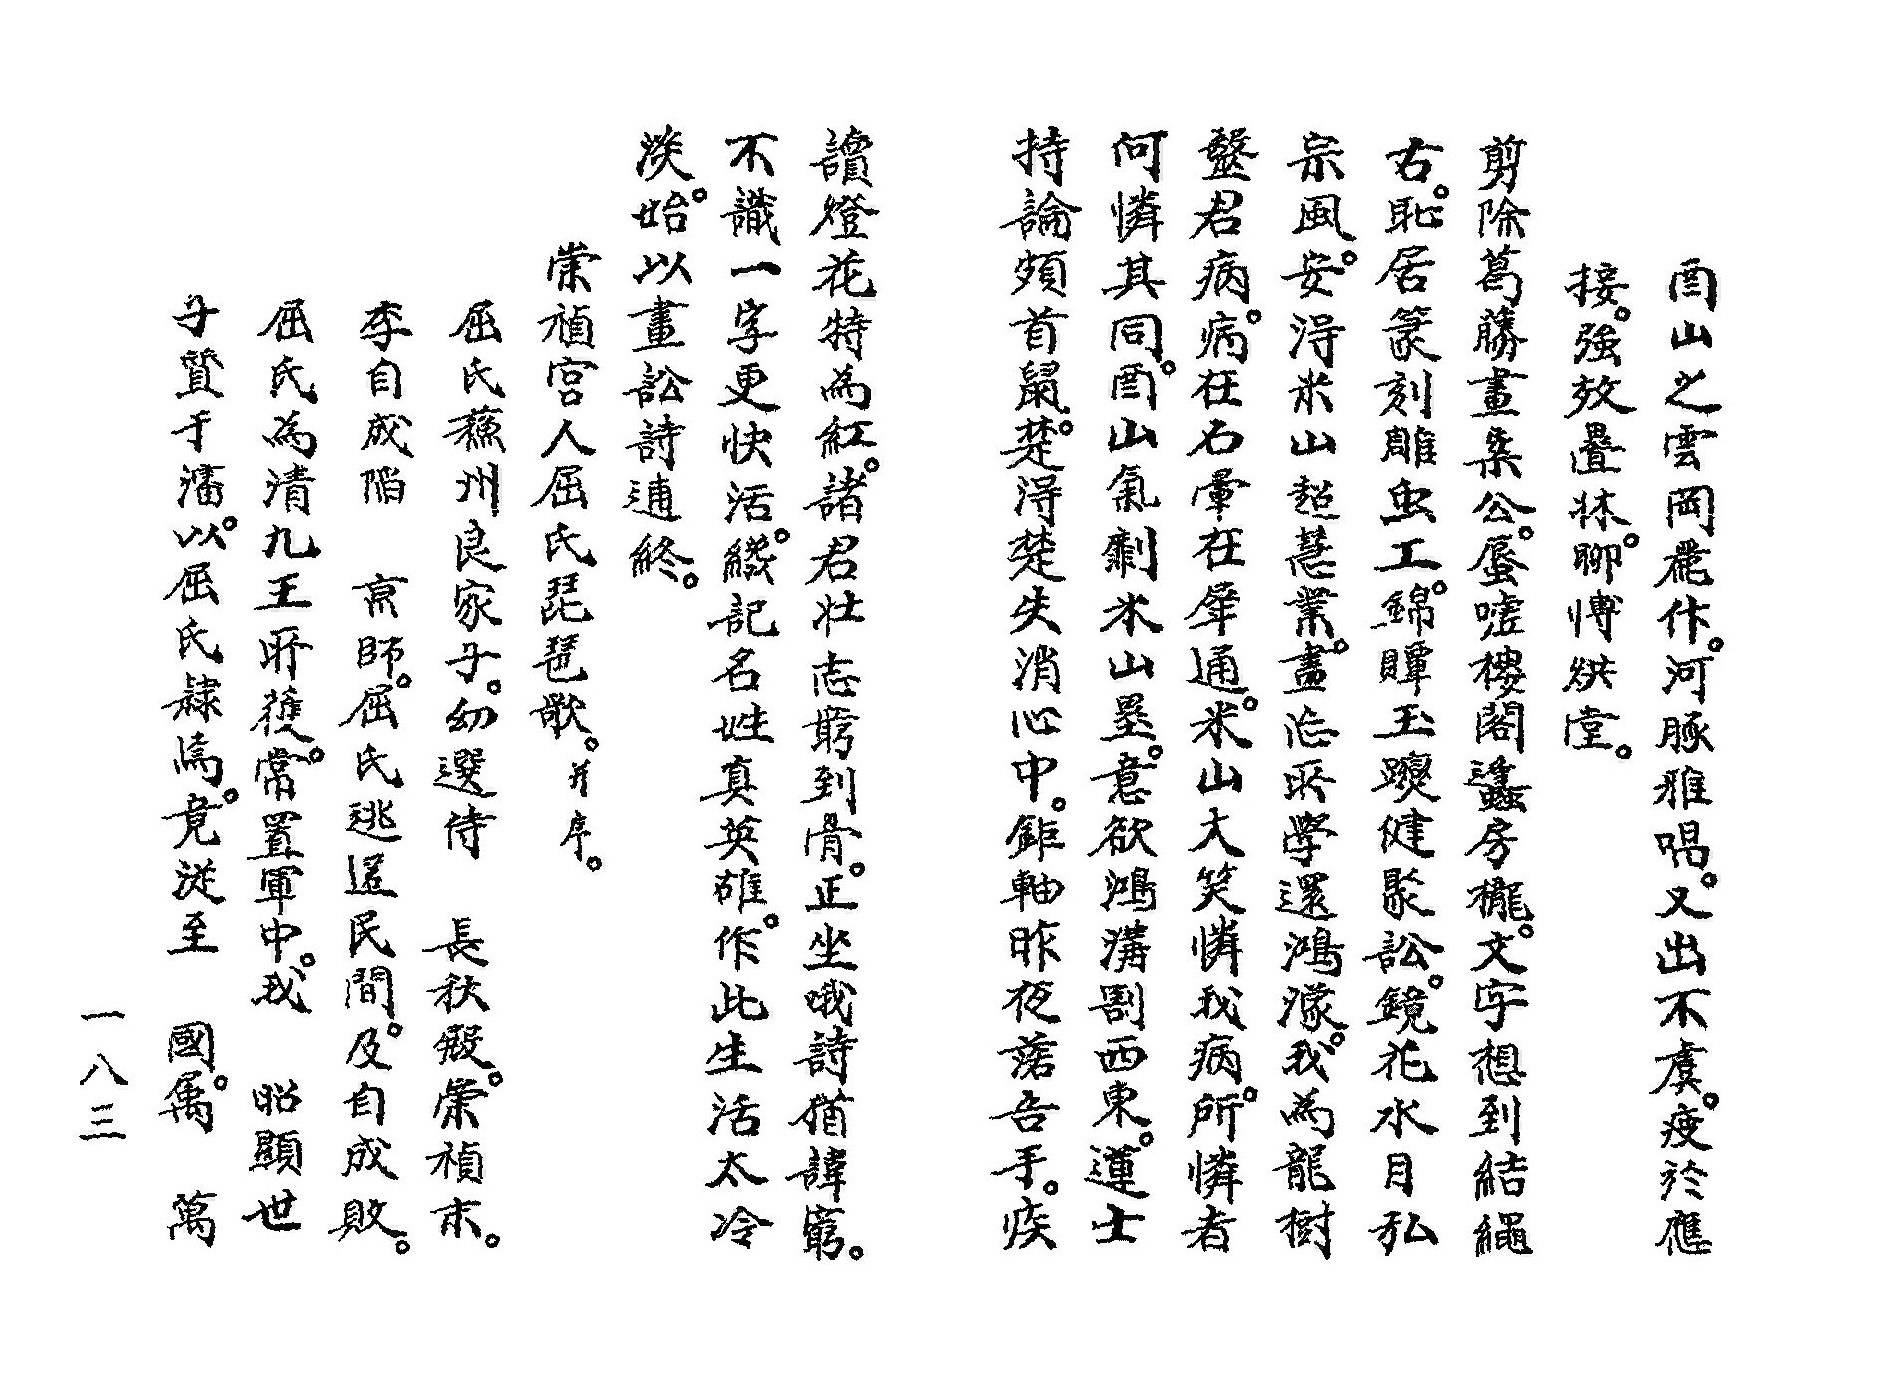 酉山之雲岡麁作。河豚雅唱。又出不虞。疲於應
接。強效疊牀。聊博烘堂。
剪除葛藤畫案公。蜃噓樓閣蠭房櫳。文字想到結繩
右。恥居篆刻雕虫工。錦贉玉躞健聚訟。鏡花水月私
宗風。安得米山超慧業。畫沁所學還鴻濛。我為龍樹
盬君病。病在石暈在犀通。米山大笑憐我病。所憐者
何憐其同。酉山氣劇水山壘。意欲鴻溝割西東。運士
持論頗首鼠。楚得楚失消心中。鉅軸昨夜落吾手。疾
讀燈花特為紅。諸君壯志窮到骨。正坐哦詩猶諱窮。
不識一字更快活。纔記名姓真英雄。作此生活太冷
淡。始以畫訟詩逋終。
崇禎宮人屈氏琵琶歌。并序。
屈氏蘇州良家子。幼選侍　長秋殿。崇禎末。
李自成陷　京師。屈氏逃匿民間。及自成敗。
屈氏為清九王所獲。常置軍中。我　昭顯世
子質于瀋。以屈氏隸焉。竟從至　國。屬　萬
一八三